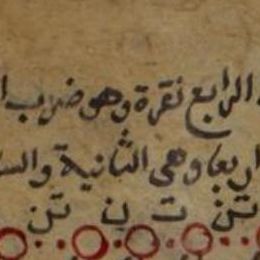 الرابع نقرة وهو ضرب ا
اربعا وهى الثانية والسا
تن ت ن تن